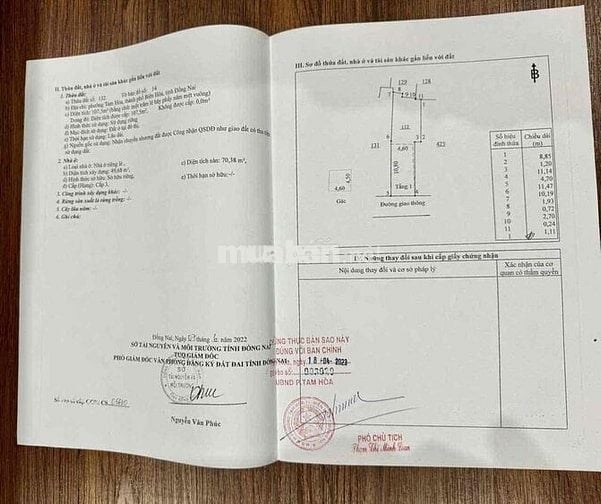 II. Thửa đất, nhà ở và tài sản khác gắn liền với đất
1. Thửa đất:
a) Thửa đất số: 132 Tờ bản đồ số: 14
b) Địa chỉ: phường Tam Hòa, thành phố Biên Hòa, tỉnh Đồng Nai
c) Diện tích: 107,5m² (bằng chữ: một trăm lẻ bảy phẩy năm mét vuông)
Trong đó: Diện tích được cấp: 107,5m². Không được cấp: 0,0m²
d) Hình thức sử dụng: Sử dụng riêng
đ) Mục đích sử dụng: Đất ở tại đô thị.
e) Thời hạn sử dụng: Lâu dài.
g) Nguồn gốc sử dụng: Nhận chuyển nhượng đất được Công nhận QSDĐ như giao đất có thu tiền
sử dụng đất.
2. Nhà ở:
a) Loại nhà ở: Nhà ở riêng lẻ.
b) Diện tích xây dựng: 49,68 m²
c) Diện tích sàn: 70,38 m².
d) Hình thức sở hữu: Sở hữu riêng.
đ) Cấp (Hạng): Cấp 3.
e) Thời hạn sở hữu:-/-
3. Công trình xây dựng khác: -/-
4. Rừng sản xuất là rừng trồng: -/-
5. Cây lâu năm: -/-
6. Ghi chú:
Đồng Nai, Ngày tháng năm 2022
SỞ TÀI NGUYÊN VÀ MÔI TRƯỜNG TỈNH ĐỒNG NAI
TUQ GIÁM ĐỐC
PHÓ GIÁM ĐỐC VĂN PHÒNG ĐĂNG KÝ ĐẤT ĐAI TỈNH ĐỒNG NAI
Nguyễn Văn Phúc
III. Sơ đồ thửa đất, nhà ở và tài sản khác gắn liền với đất
B
129
128
132
131
423
4,60
10,80
Tầng 1
4,50
4,60
Gác
Đường giao thông
Số hiệu đỉnh thửa
Chiều dài (m)
1 8,85
2 1,20
3 11,14
4 4,70
5 11,47
6 10,19
7 1,93
8 0,72
9 2,70
10 0,24
11 1,11
1
IV. Những thay đổi sau khi cấp giấy chứng nhận
Nội dung thay đổi và cơ sở pháp lý
Xác nhận của cơ
quan có thẩm quyền
CHỨNG THỰC BẢN SAO NÀY
ĐÚNG VỚI BẢN CHÍNH
18 -04- 2023
UBND P.TAM HÒA
PHÓ CHỦ TỊCH